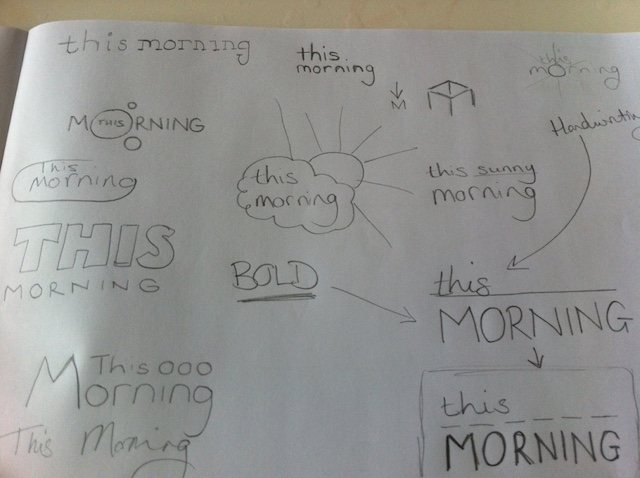 this morning
this
morning
this
morning
M
Handwriting
M THIS RNING
This
Morning
this
morning
this sunny
morning
THIS
MORNING
BOLD
this
MORNING
This OOO
Morning
this
MORNING
This Morning